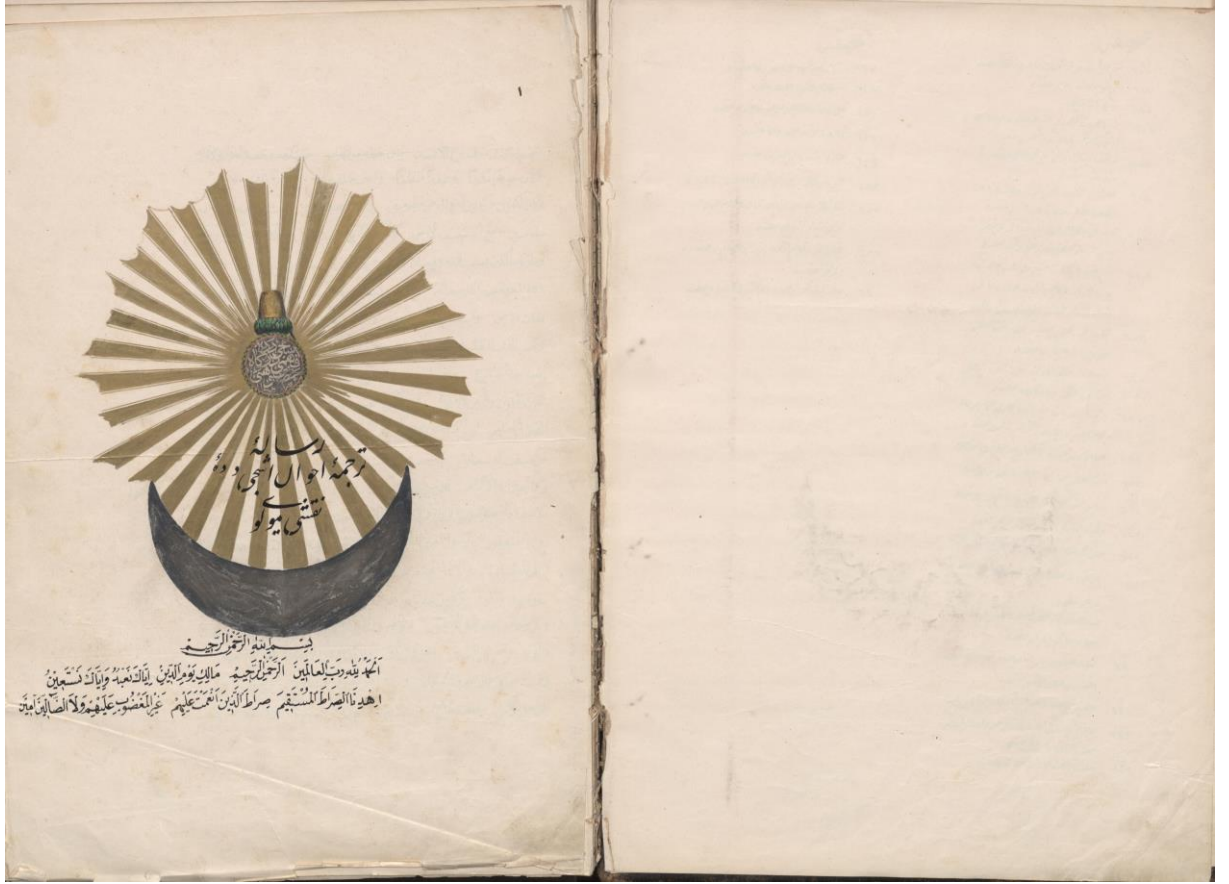 ١
رسالهٔ
ترجمهٔ احوال اشجی دده
نقشی مولوی
بِسْمِ اللهِ الرَّحْمٰنِ الرَّحِيمِ
اَلْحَمْدُ لِلّٰهِ رَبِّ الْعَالَمِينَ اَلرَّحْمٰنِ الرَّحِيمِ مَالِكِ يَوْمِ الدِّينِ اِيَّاكَ نَعْبُدُ وَاِيَّاكَ نَسْتَعِينُ
اِهْدِنَا الصِّرَاطَ الْمُسْتَقِيمَ صِرَاطَ الَّذِينَ اَنْعَمْتَ عَلَيْهِمْ غَيْرِ الْمَغْضُوبِ عَلَيْهِمْ وَلَا الضَّالِّينَ اٰمِينَ